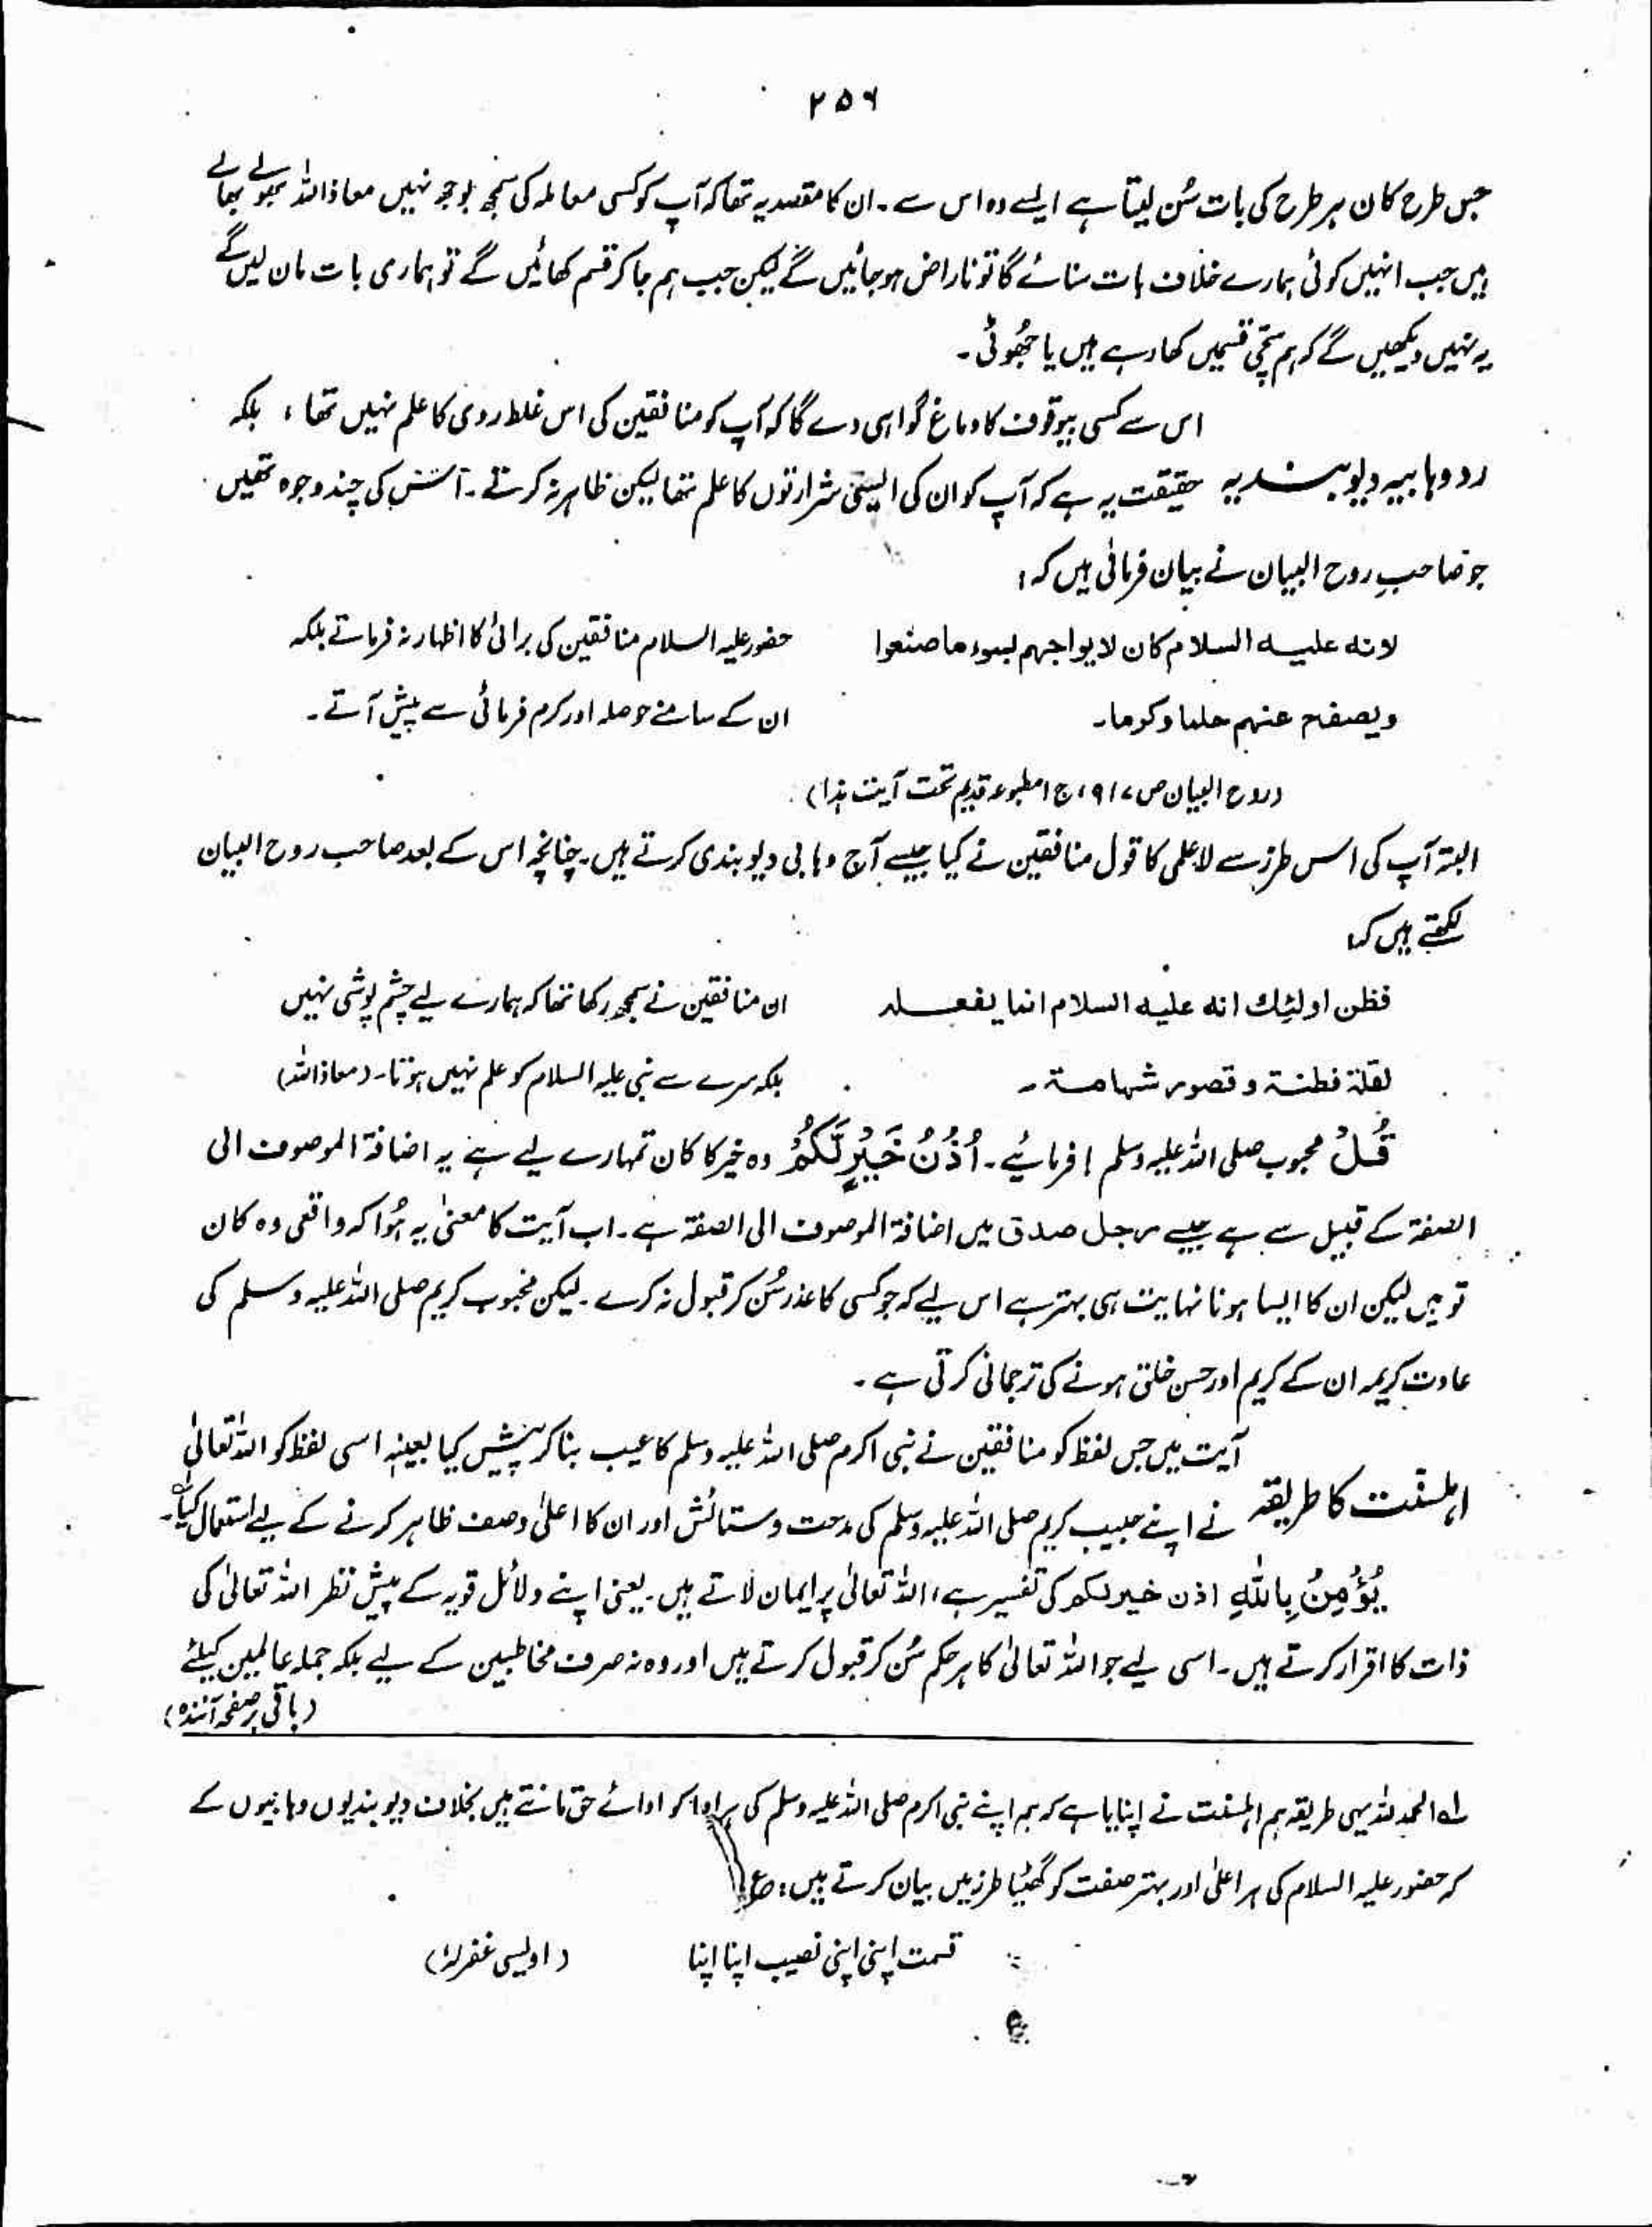 ۲۵۶
جس طرح کان ہر طرح کی بات سُن لیتا ہے ایسے وہ اس سے۔ ان کا مقصد یہ تھا کہ آپ کو کسی معاملہ کی سمجھ بوجھ نہیں معاذ اللہ بھولے بھالے
ہیں جب انہیں کوئی ہمارے خلاف بات سنائے گا تو ناراض ہو جائیں گے لیکن جب ہم جا کر قسم کھائیں گے تو ہماری بات مان لیں گے
یہ نہیں دیکھیں گے کہ ہم سچی قسمیں کھا رہے ہیں یا جھُوٹی۔
اس سے کسی بیوقوف کا دماغ گواہی دے گا کہ آپ کو منافقین کی اس غلط روی کا علم نہیں تھا، بلکہ
رد وہابیہ دیوبندیہ حقیقت یہ ہے کہ آپ کو ان کی ایسی شرارتوں کا علم تھا لیکن ظاہر نہ کرتے۔ اس کی چند وجوہ تھیں
جو صاحبِ روح البیان نے بیان فرمائی ہیں کہ:
لانہ علیہ السلام کان لا یواجہم بسوء ما صنعوا حضور علیہ السلام منافقین کی برائی کا اظہار نہ فرماتے بلکہ
ویصفح عنہم حلما وکرما۔ ان کے سامنے حوصلہ اور کرم فرمائی سے پیش آتے۔
(روح البیان ص ۹۱۷، ج ۱ مطبوعہ قدیم تحت آیت ہذا)
البتہ آپ کی اس طرز سے لاعلمی کا قول منافقین نے کیا جیسے آج وہابی دیوبندی کرتے ہیں۔ چنانچہ اس کے بعد صاحب روح البیان
لکھتے ہیں کہ:
فظن اولئک انہ علیہ السلام انما یفعلہ ان منافقین نے سمجھ رکھا تھا کہ ہمارے لیے چشم پوشی نہیں
لقلۃ فطنۃ وقصور شہامۃ۔ بلکہ سرے سے نبی علیہ السلام کو علم نہیں ہوتا۔ (معاذ اللہ)
قُلْ محبوب صلی اللہ علیہ وسلم! فرمائیے۔ اُذُنُ خَیْرٍ لَّکُمْ وہ خیر کا کان تمہارے لیے ہے یہ اضافۃ الموصوف الی
الصفۃ کے قبیل سے ہے جیسے رجل صدق میں اضافۃ الموصوف الی الصفۃ ہے۔ اب آیت کا معنیٰ یہ ہُوا کہ واقعی وہ کان
تو ہیں لیکن ان کا ایسا ہونا نہایت ہی بہتر ہے اس لیے کہ جو کسی کا عذر سُن کر قبول نہ کرے۔ لیکن محبوب کریم صلی اللہ علیہ وسلم کی
عادت کریمہ ان کے کریم اور حسن خلق ہونے کی ترجمانی کرتی ہے۔
آیت میں جس لفظ کو منافقین نے نبی اکرم صلی اللہ علیہ وسلم کا عیب بنا کر پیش کیا بعینہٖ اسی لفظ کو اللہ تعالیٰ
اہلسنّت کا طریقہ نے اپنے حبیب کریم صلی اللہ علیہ وسلم کی مدحت و ستائش اور ان کا اعلیٰ وصف ظاہر کرنے کے لیے استعمال کیا۔
یُؤْمِنُ بِاللّٰہِ اذن خیر لکم کی تفسیر ہے، اللہ تعالیٰ پر ایمان لاتے ہیں۔ یعنی اپنے دلائل قویہ کے پیش نظر اللہ تعالیٰ کی
ذات کا اقرار کرتے ہیں۔ اسی لیے جو اللہ تعالیٰ کا ہر حکم سُن کر قبول کرتے ہیں اور وہ نہ صرف مخاطبین کے لیے بلکہ جملہ عالمین کیلئے
(باقی بر صفحہ آئندہ)
لہ الحمد للہ یہی طریقہ ہم اہلسنت نے اپنایا ہے کہ ہم اپنے نبی اکرم صلی اللہ علیہ وسلم کی ہر ادا کو ادائے حق مانتے ہیں بخلاف دیوبندیوں وہابیوں کے
کہ حضور علیہ السلام کی ہر اعلیٰ اور بہتر صفت کو گھٹیا طرز میں بیان کرتے ہیں: ع
قسمت اپنی اپنی نصیب اپنا اپنا (اویسی غفرلہٗ)